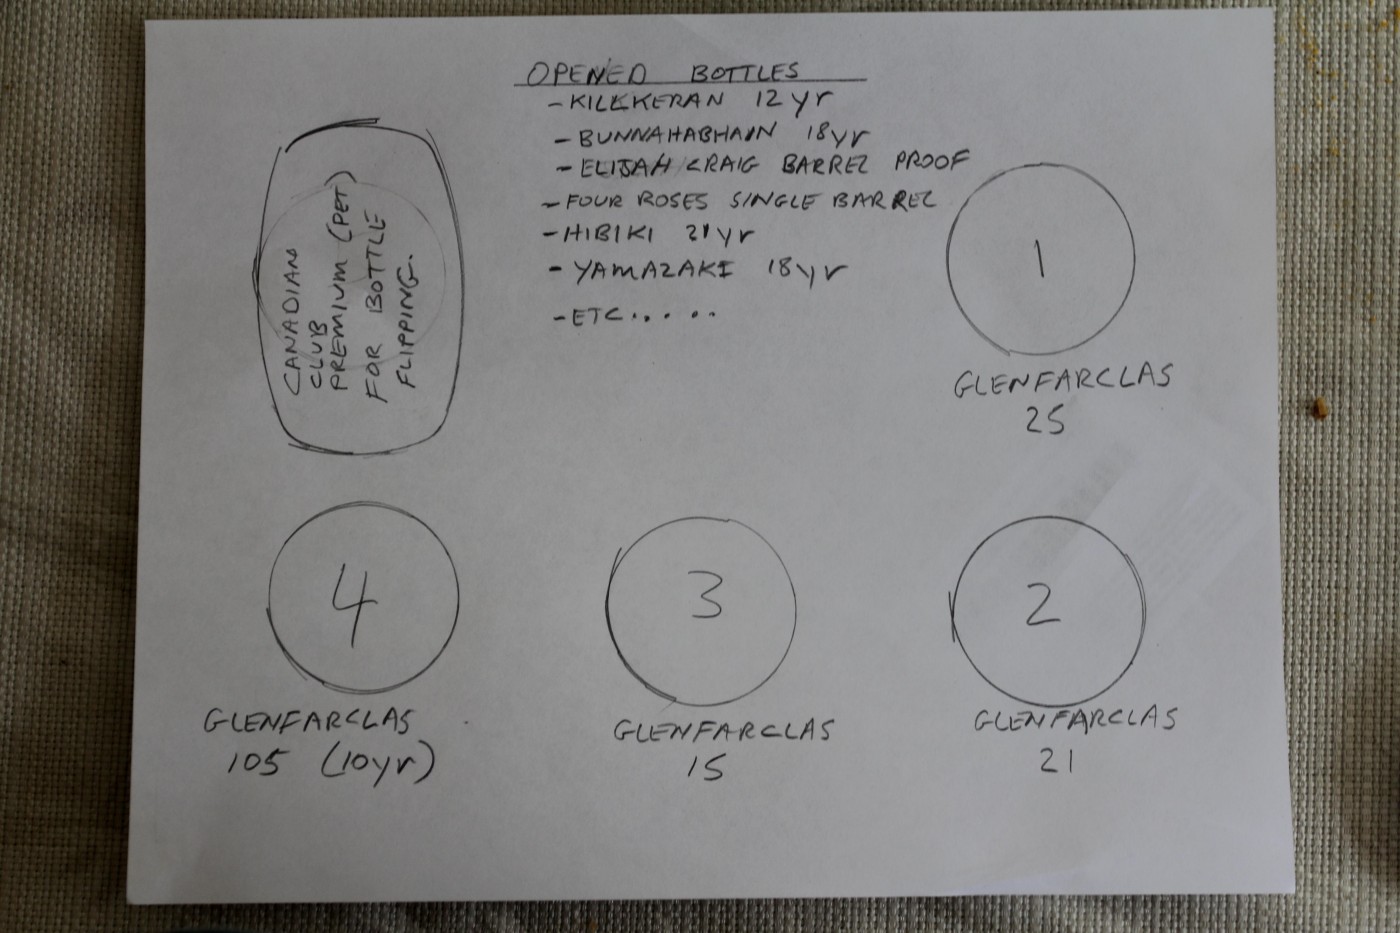 OPENED BOTTLES
- KILKKERAN 12 yr
- BUNNAHABHAIN 18yr
- ELIJAH CRAIG BARREL PROOF
- FOUR ROSES SINGLE BARREL
- HIBIKI 21 yr
- YAMAZAKI 18 yr
- ETC.....
CANADIAN
CLUB
PREMIUM (PET)
FOR BOTTLE
FLIPPING.
1
GLENFARCLAS
25
4
GLENFARCLAS
105 (10yr)
3
GLENFARCLAS
15
2
GLENFARCLAS
21